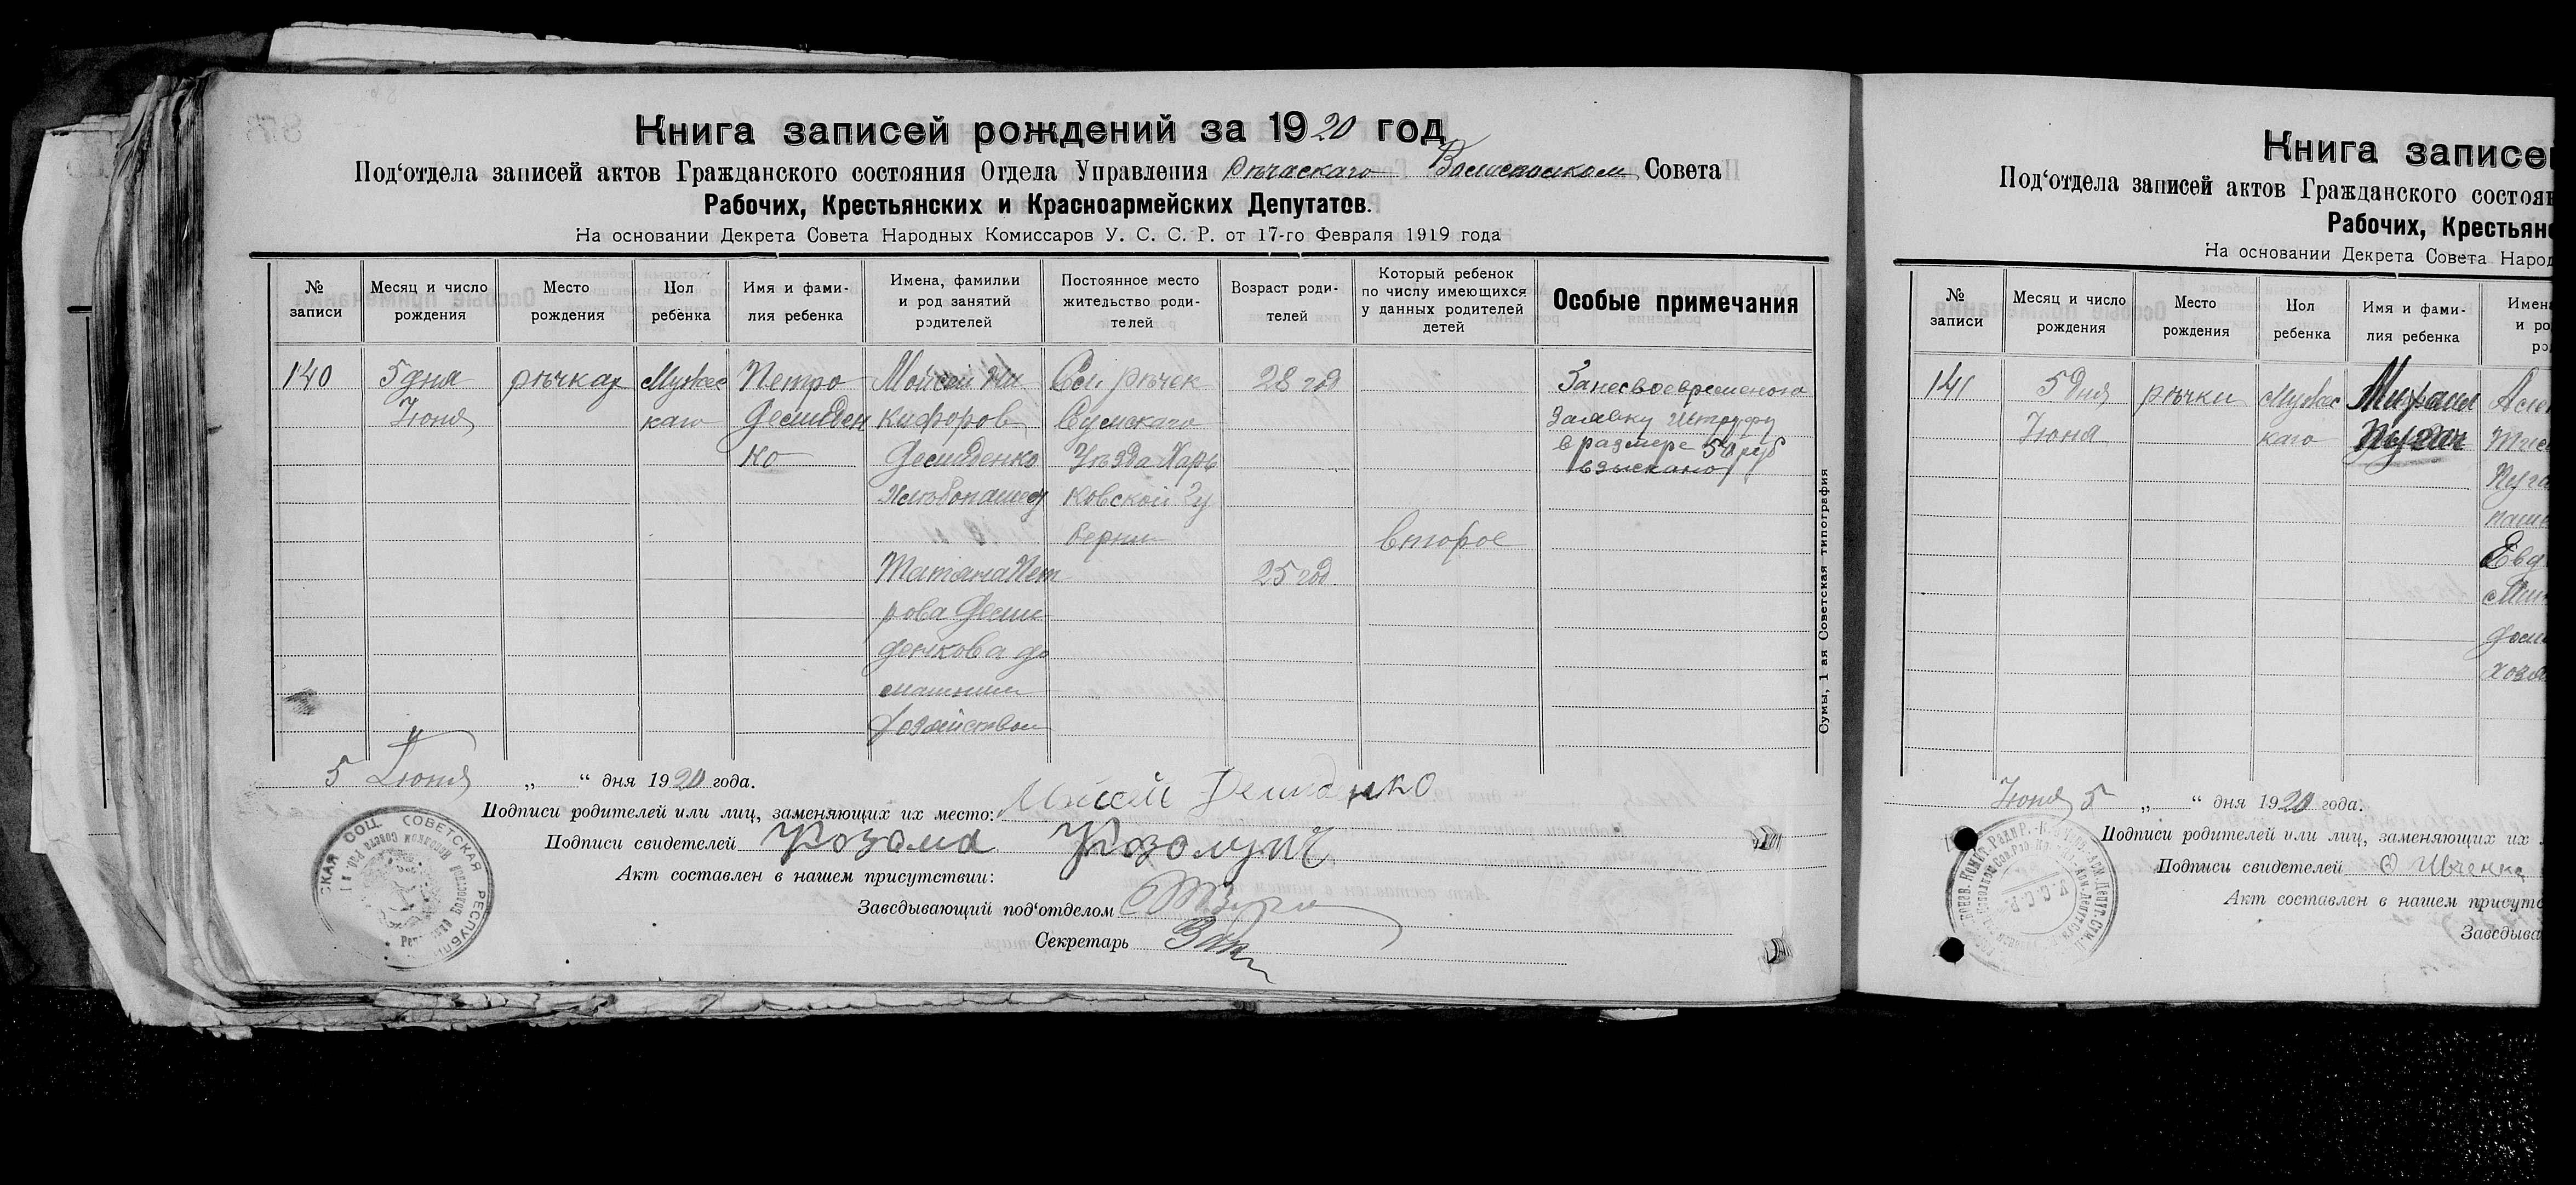 Книга записей рождений за 1920 год
Под‘отдела записей актов Гражданского состояния Отдела Управления Рѣчскаго Волисполком Совета
Рабочих, Крестьянских и Красноармейских Депутатов.
На основании Декрета Совета Народных Комиссаров У. С. С. Р. от 17-го Февраля 1919 года
№ записи
Месяц и число рождения
Место рождения
Пол ребенка
Имя и фамилия ребенка
Имена, фамилии и род занятий родителей
Постоянное место жительство родителей
Возраст родителей
Который ребенок по числу имеющихся у данных родителей детей
Особые примечания
140
5 дня
Июня
рѣчках
Мужес
каго
Петро
Демиден
ко
Мойсей Ни
кифоров
Демиденко
Хлѣбопашец
Татяна Пет
рова Деми
денкова до
машним
хозяйством
Сел. Рѣчек
Сумскаго
Уѣзда Харь
ковской Гу
бернии
28 год
25 год
второе
За несвоевременого
Заявку Штрафу
в размере 50 руб
взыскано
Сумы, 1-ая Советская типография
5 Июня „ “ дня 1920 года.
Подписи родителей или лиц, заменяющих их место: Мойсей Демиденко
Подписи свидетелей
Акт составлен в нашем присутствии:
Заведывающий под‘отделом
Секретарь
СОВЕТСКАЯ РЕСПУБЛ
Книга записе
Под‘отдела записей актов Гражданского состоян
Рабочих, Крестьян
На основании Декрета Совета Народ
№ записи
Месяц и число рождения
Место рождения
Пол ребенка
Имя и фамилия ребенка
Имен
и ро
ро
141
5 Дня
Июня
рѣчки
Мужес
каго
Михаил
Пугач
Пуга
паше
Евд
дом
хозя
Июня 5 „ “ дня 1920 года.
Подписи родителей или лиц, заменяющих их
Подписи свидетелей Ивченко
Акт составлен в нашем присутс
Заведыва
У.С.С.Р.